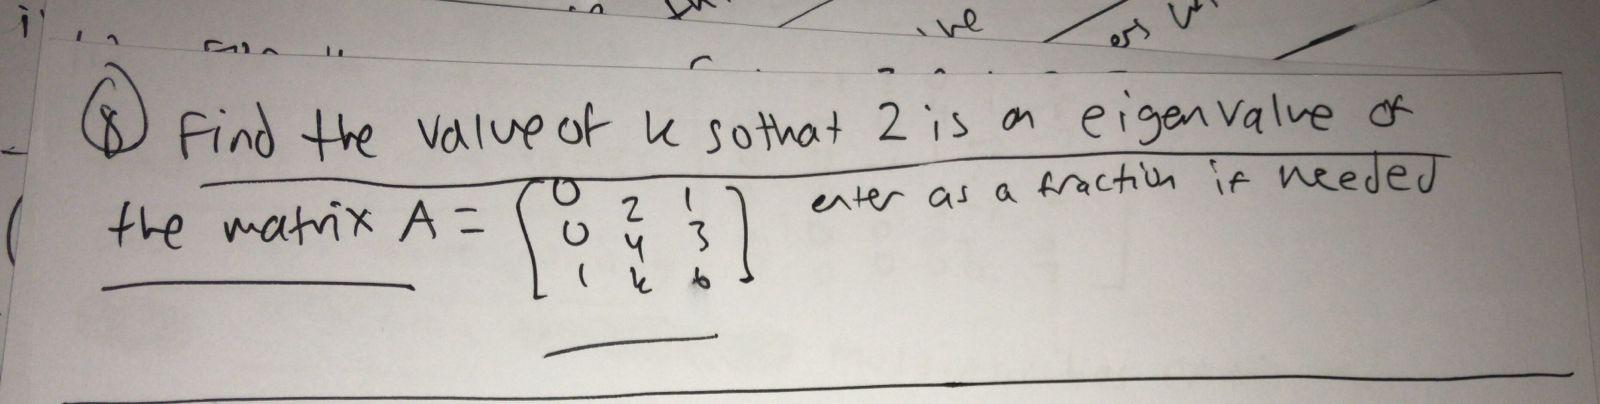 ive
ers
⑧ Find the value of k so that 2 is an eigenvalue of
the matrix A = [0 2 1 enter as a fraction if needed
0 4 3
1 k 6]